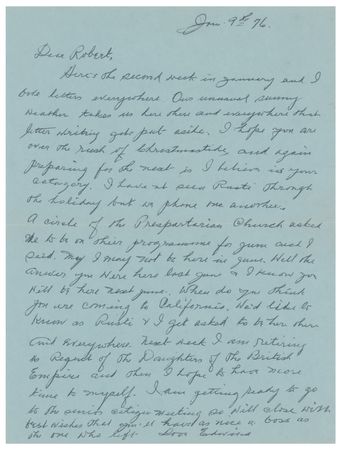 Jan. 9th 76.
Dear Robert,
Here's the second week in January and I
owe letters everywhere. Our unusual sunny
weather takes us here there and everywhere that
letter writing gets put aside. I hope you are
over the rush of Christmastide, and again
preparing for the next is I believe in your
category. I have not seen Rusti through
the holiday but we phone one another.
A circle of the Presparitarian Church asked
me to be on their programme for June and I
said, my I may not be here in June. Well the
answer you were here last June & I know you
will be here next June. When do you think
you are coming to California. We'd like to
know as Rusti & I get asked to be here there
and everywhere. Next week I am retiring
as Regent of the Daughters of the British
Empire and then I hope to have more
time to myself. I am getting ready to go
to the senior citizen meeting so will close with
best wishes that you'll have as nice a boss as
the one who left. Love